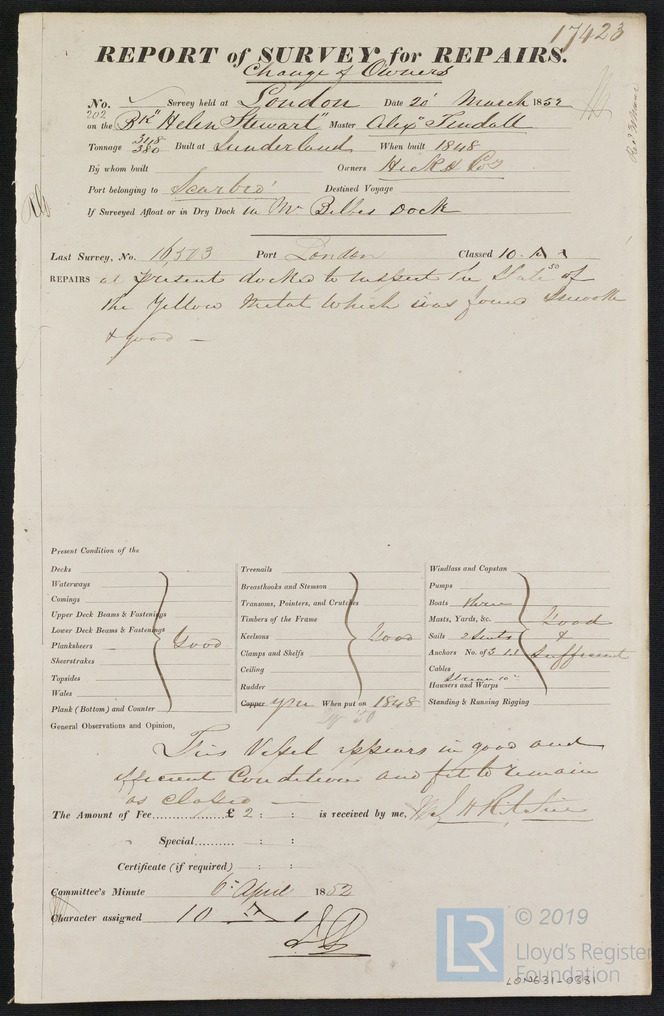 17423
REPORT of SURVEY for REPAIRS.
Change of Owners
No. Survey held at London Date 20 March 1852
202
on the Bk "Helen Stewart" Master Alexr Tindall
Tonnage 318 380 Built at Sunderland When built 1848
By whom built Owners Hick & Co
Port belonging to Scarbro' Destined Voyage
If Surveyed Afloat or in Dry Dock in Mr Bilbes Dock
Last Survey, No. 16,573 Port London Classed 10 A 1
REPAIRS at present docked to inspect the State of
the Yellow Metal which was found Smooth
& good —
Present Condition of the
Decks
Waterways
Comings
Upper Deck Beams & Fastenings
Lower Deck Beams & Fastenings
Planksheers
Sheerstrakes
Topsides
Wales
Plank (Bottom) and Counter
Good
Treenails
Breasthooks and Stemson
Transoms, Pointers, and Crutches
Timbers of the Frame
Keelsons
Clamps and Shelfs
Ceiling
Rudder
Copper ym When put on 1848
Good
Windlass and Capstan
Pumps
Boats three
Masts, Yards, &c.
Sails 2 Suits
Anchors No. of 3 1.1
Cables
Stream
Hawsers and Warps
Standing & Running Rigging
Good
&
Sufficient
General Observations and Opinion,
This Vessel appears in good and
efficient Condition and fit to remain
as classed —
The Amount of Fee £ 2 : : is received by me, Ritchie
Special : :
Certificate (if required) : :
Committee's Minute 6th April 1852
Character assigned 10 A 1
LR
© 2019
Lloyd's Register
Foundation
LON631-0331